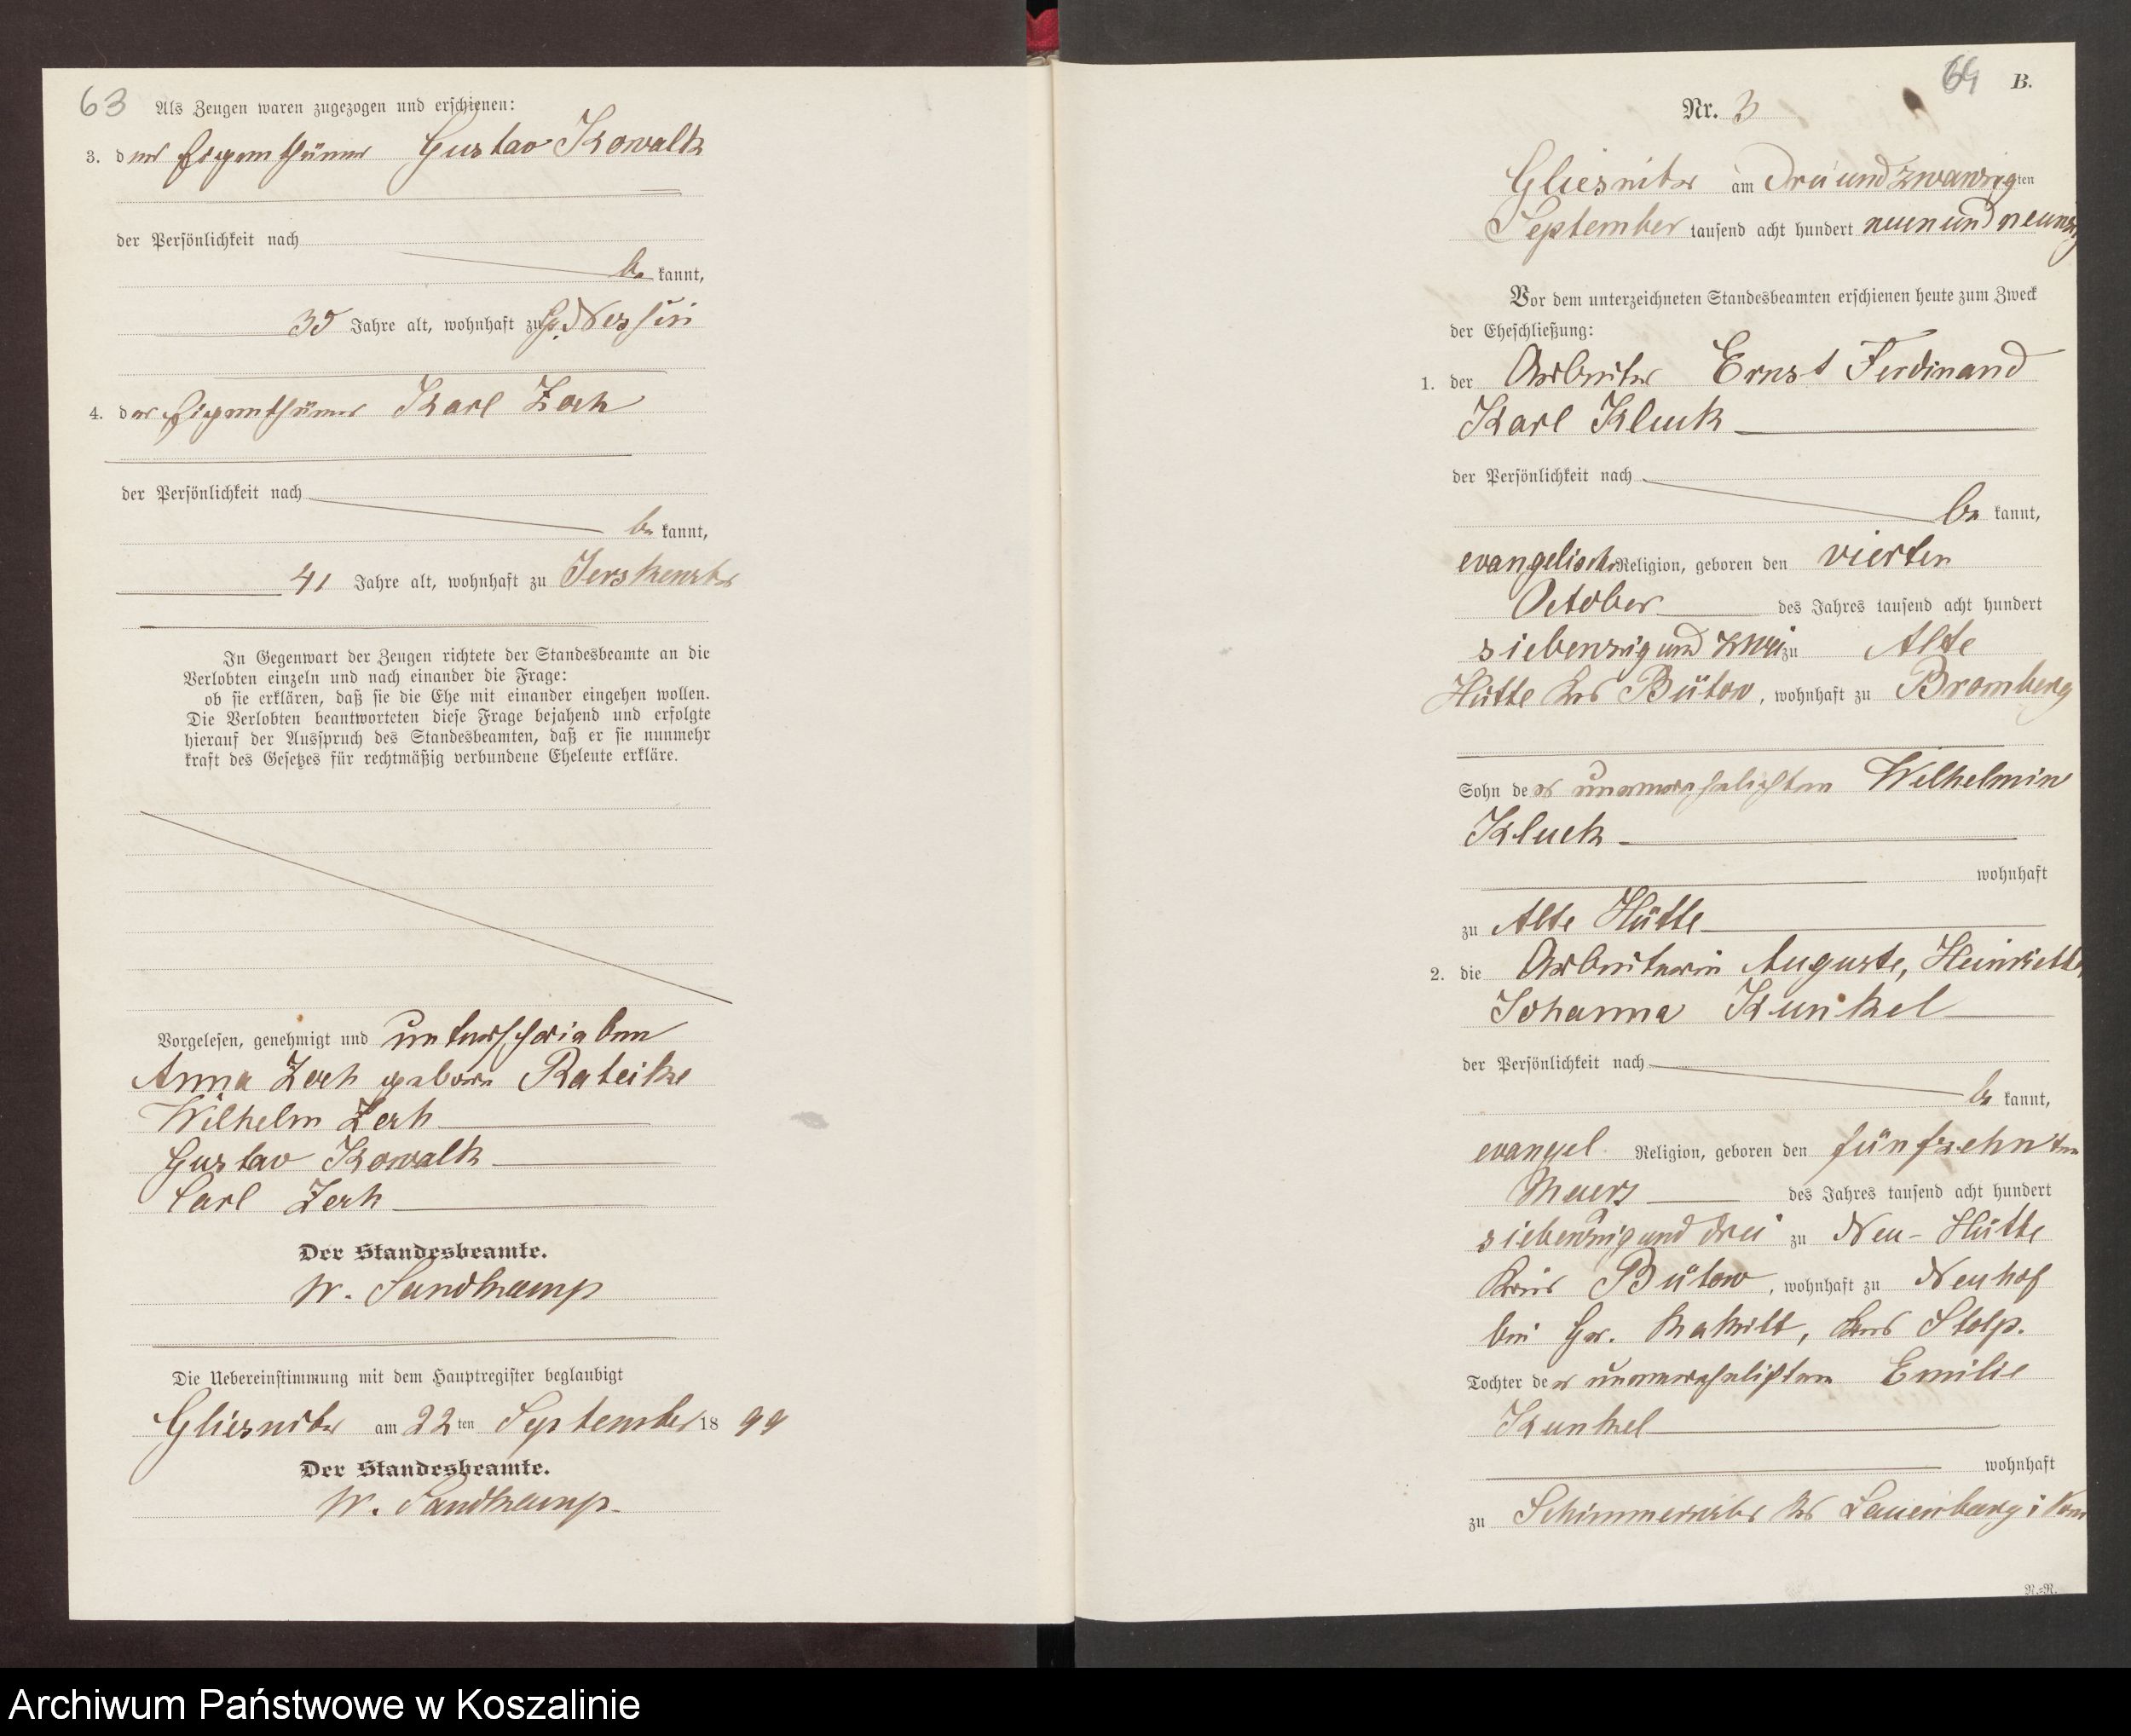 63 Als Zeugen waren zugezogen und erschienen:
3. der Eigenthümer Gustav Kowalk
der Persönlichkeit nach
be kannt,
35 Jahre alt, wohnhaft zu Gr. Nossin
4. der Eigenthümer Karl Zech
der Persönlichkeit nach
be kannt,
41 Jahre alt, wohnhaft zu Jerskewitz
In Gegenwart der Zeugen richtete der Standesbeamte an die
Verlobten einzeln und nach einander die Frage:
ob sie erklären, daß sie die Ehe mit einander eingehen wollen.
Die Verlobten beantworteten diese Frage bejahend und erfolgte
hierauf der Ausspruch des Standesbeamten, daß er sie nunmehr
kraft des Gesetzes für rechtmäßig verbundene Eheleute erkläre.
Vorgelesen, genehmigt und unterschrieben
Anna Zech geborn Rateike
Wilhelm Zech
Gustav Kowalk
Carl Zech
Der Standesbeamte.
W. Sandkamp
Die Uebereinstimmung mit dem Hauptregister beglaubigt
Gliesnitz am 22 ten September 18 99
Der Standesbeamte.
W. Sandkamp.
64 B.
Nr. 3
Gliesnitz am Drei und zwanzig ten
September tausend acht hundert neun und neunzig
Vor dem unterzeichneten Standesbeamten erschienen heute zum Zweck
der Eheschließung:
1. der Arbeiter Ernst Ferdinand
Karl Kluck
der Persönlichkeit nach
be kannt,
evangelischer Religion, geboren den vierten
October des Jahres tausend acht hundert
siebenzig und zwei zu Alte
Hütte Krs Bütow, wohnhaft zu Bromberg
Sohn der unverehelichten Wilhelmine
Kluck
wohnhaft
zu Alte Hütte
2. die Arbeiterin Auguste, Heinriette
Johanna Kunkel
der Persönlichkeit nach
be kannt,
evangel. Religion, geboren den fünfzehnten
Maerz des Jahres tausend acht hundert
siebenzig und drei zu Neu-Hütte
Kreis Bütow, wohnhaft zu Neuhof
bei Gr. Rakitt, Krs Stolp.
Tochter der unverehelichten Emilie
Kunkel
wohnhaft
zu Schimmerwitz Krs Lauenburg i Pom
N.=R.
Archiwum Państwowe w Koszalinie